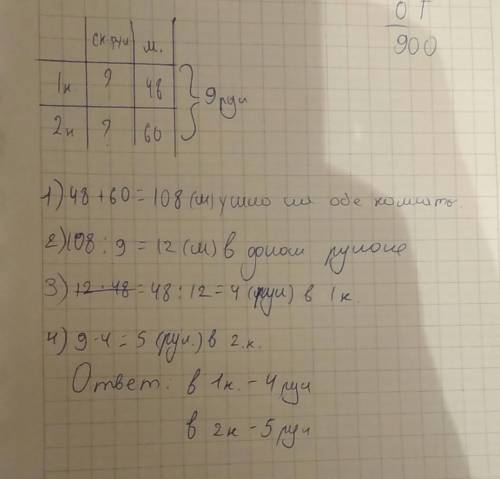 0 Г
900
ск. рул м.
1к ? 48
9 рул
2к ? 60
1) 48 + 60 = 108 (м) ушло на обе комнаты.
2) 108 : 9 = 12 (м) в одном рулоне
3) 12 · 48 = 48 : 12 = 4 (рул) в 1 к.
4) 9 - 4 = 5 (рул.) в 2.к.
Ответ: в 1к. - 4 рул
в 2к - 5 рул